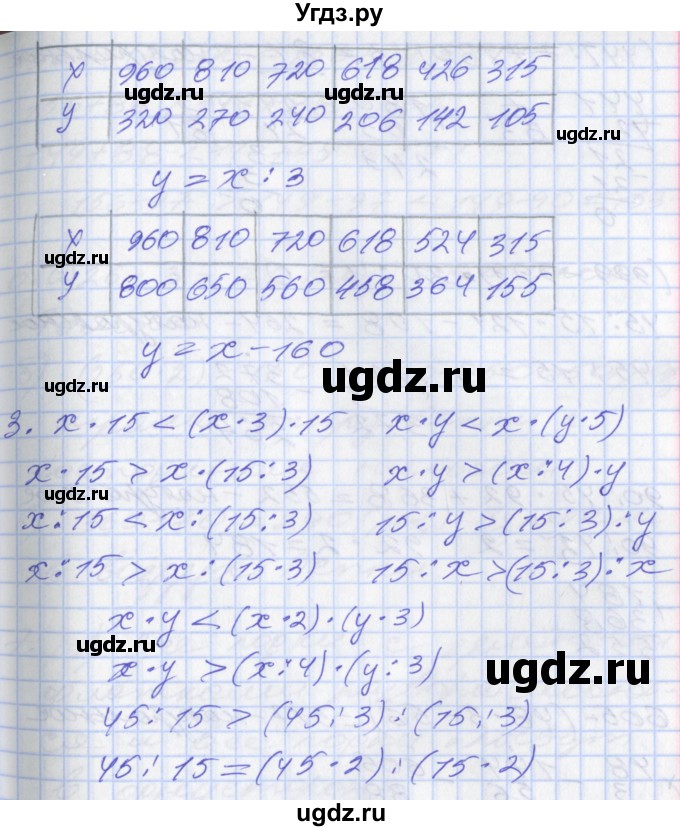 Угдз.ру
x 960 810 720 618 426 315
ugdz.ru ugdz.ru
y 320 270 240 206 142 105
ugdz.ru
y = x : 3
x 960 810 720 618 524 315
ugdz.ru
y 800 650 560 458 364 155
y = x - 160
ugdz.ru ugdz.ru
3. x · 15 < (x · 3) · 15 x · y < x · (y · 5)
x · 15 > x · (15 : 3) x · y > (x : 4) · y
ugdz.ru
x : 15 < x : (15 : 3) 15 : y > (15 : 3) : y
x : 15 > x : (15 · 3) 15 : x > (15 : 3) : x
x · y < (x · 2) · (y · 3)
ugdz.ru ugdz.ru
x · y > (x : 4) · (y : 3)
45 : 15 > (45 : 3) : (15 : 3)
45 : 15 = (45 · 2) : (15 · 2)
ugdz.ru